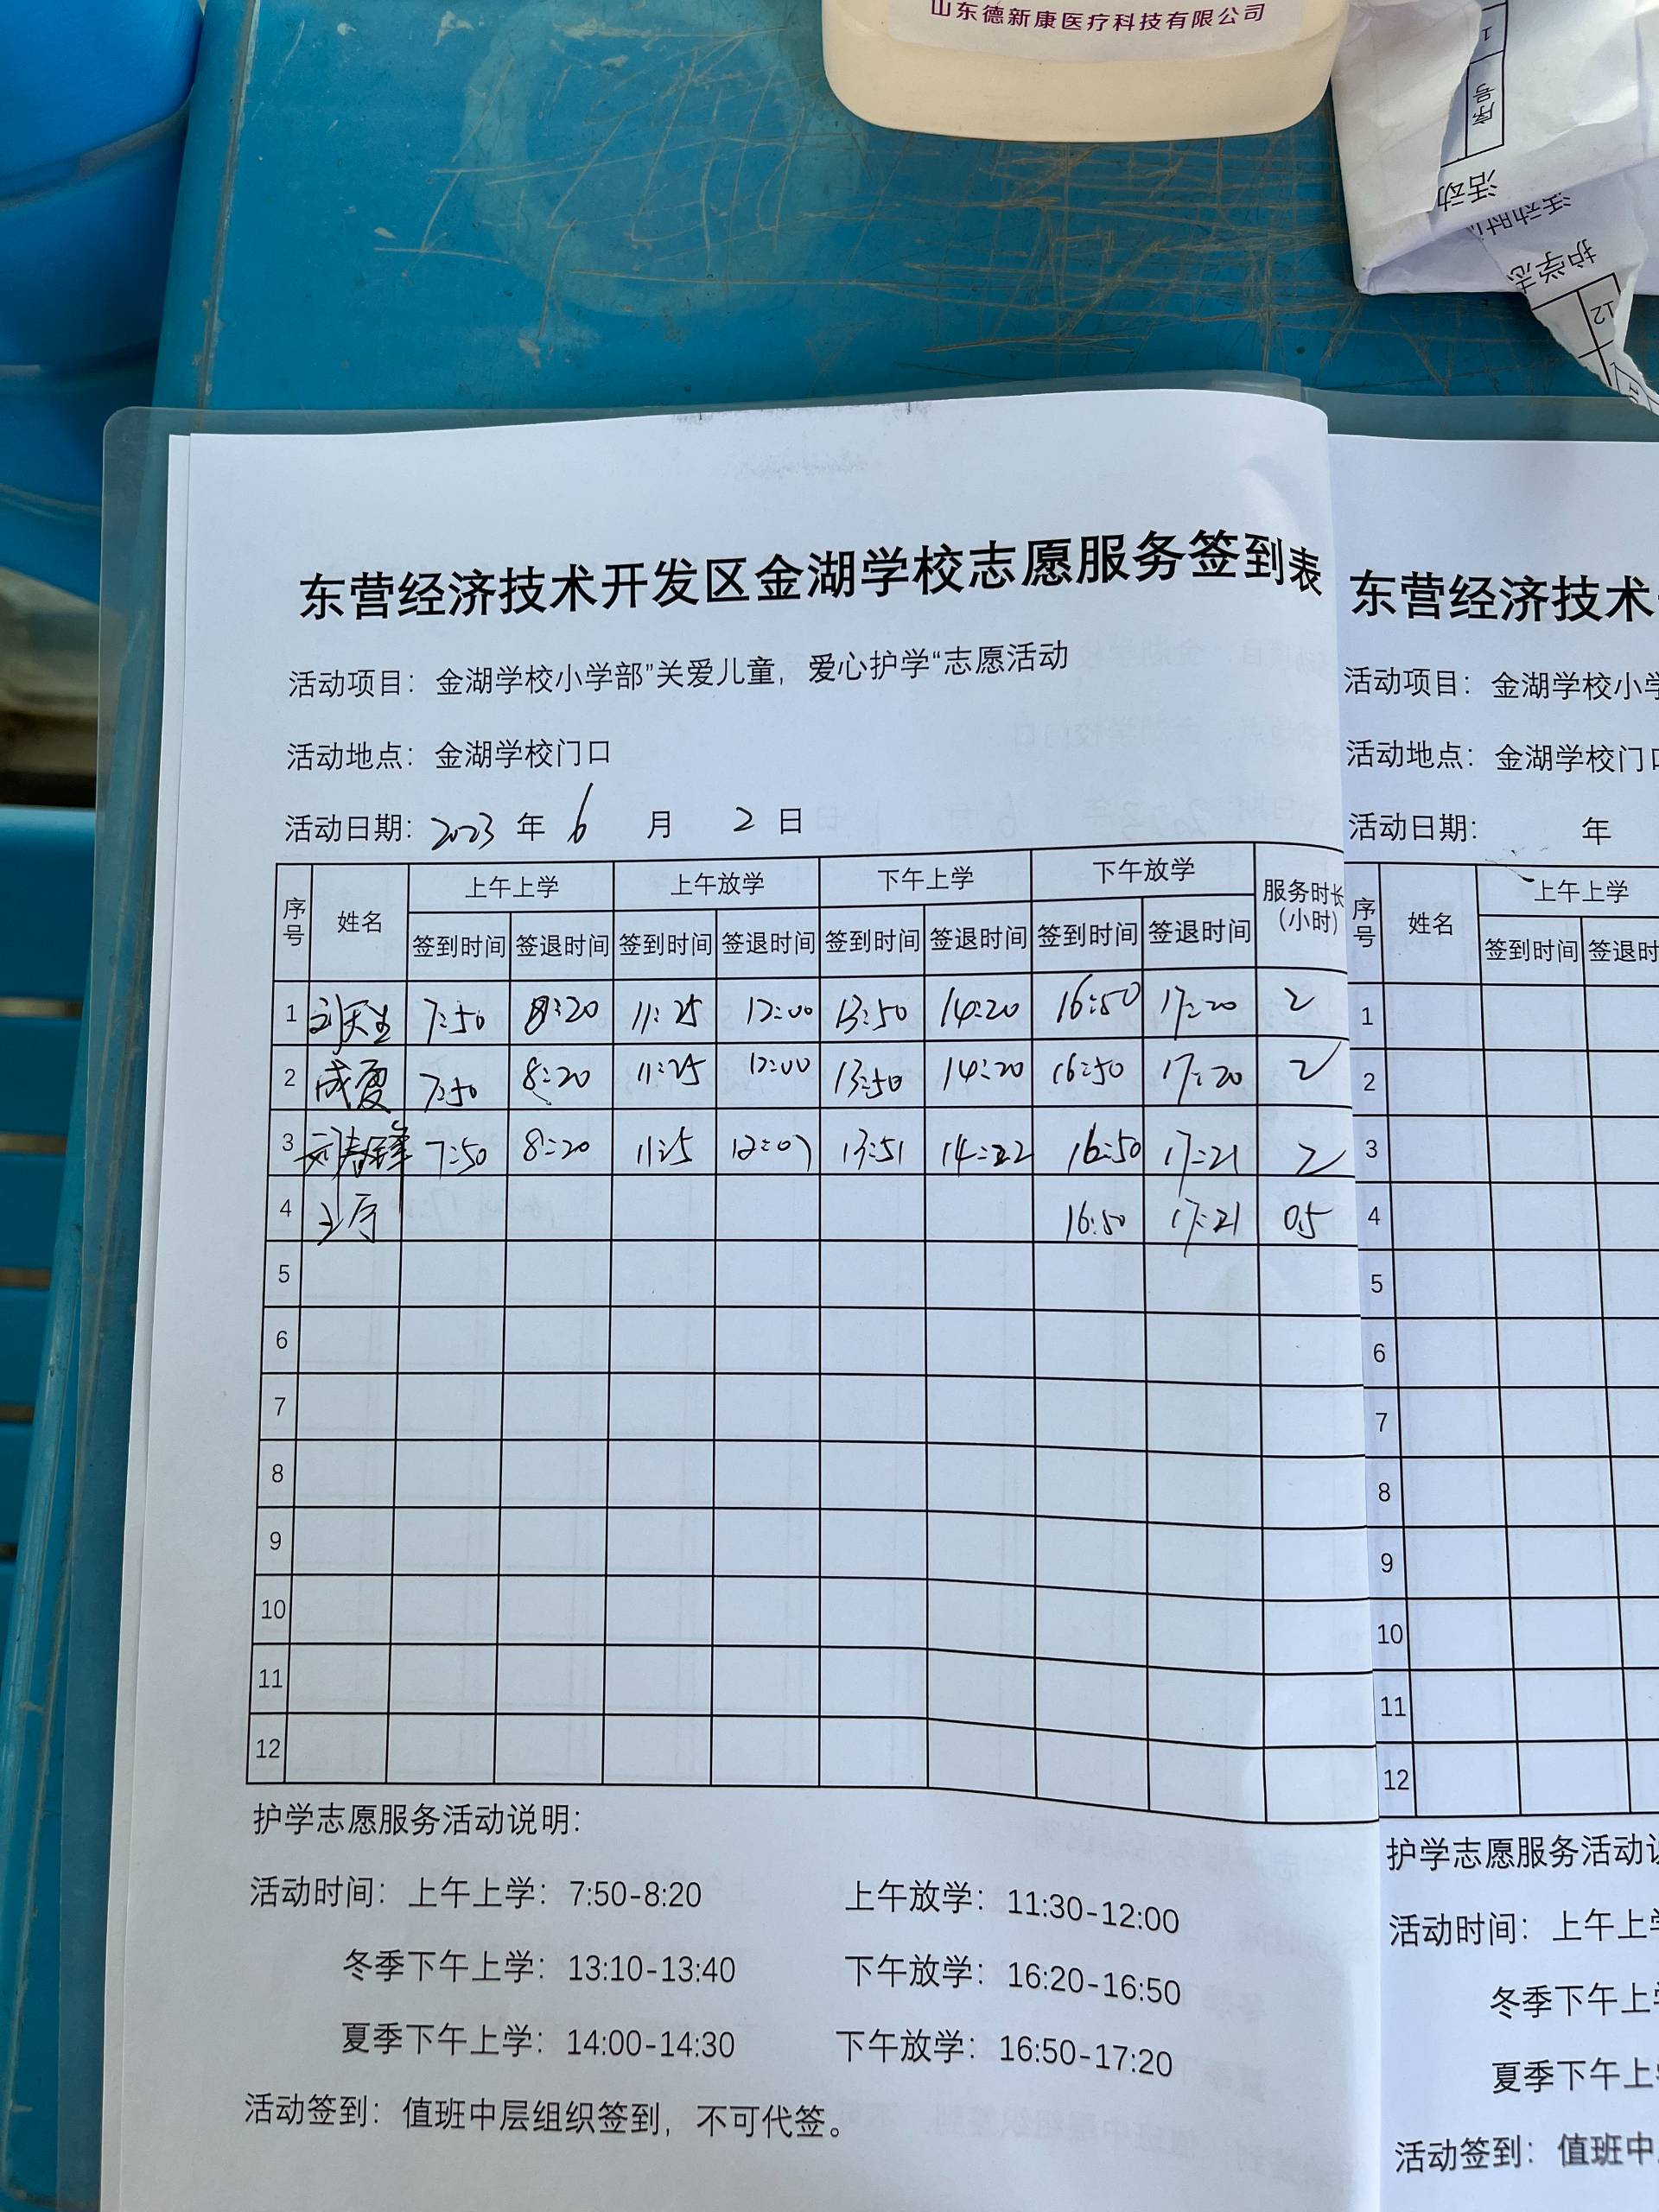 山东德新康医疗科技有限公司
1
序号
活动
活动时
护学志
12
东营经济技术开发区金湖学校志愿服务签到表
活动项目：金湖学校小学部”关爱儿童，爱心护学“志愿活动
活动地点：金湖学校门口
活动日期：2023 年 6 月 2 日
序号 姓名 上午上学 上午放学 下午上学 下午放学 服务时长（小时）
签到时间 签退时间 签到时间 签退时间 签到时间 签退时间 签到时间 签退时间
1 刘天生 7:50 8:20 11:25 12:00 13:50 14:20 16:50 17:20 2
2 成霞 7:50 8:20 11:25 12:00 13:50 14:20 16:50 17:20 2
3 7:50 8:20 13:51 14:22 16:50 17:21 2
4 16:50 17:21 0.5
5
6
7
8
9
10
11
12
护学志愿服务活动说明：
活动时间：上午上学：7:50-8:20 上午放学：11:30-12:00
冬季下午上学：13:10-13:40 下午放学：16:20-16:50
夏季下午上学：14:00-14:30 下午放学：16:50-17:20
活动签到：值班中层组织签到，不可代签。
东营经济技术
活动项目：金湖学校小学
活动地点：金湖学校门口
活动日期： 年
序号 姓名 上午上学
签到时间 签退时
1
2
3
4
5
6
7
8
9
10
11
12
护学志愿服务活动说
活动时间：上午上学
冬季下午上学
夏季下午上
活动签到：值班中